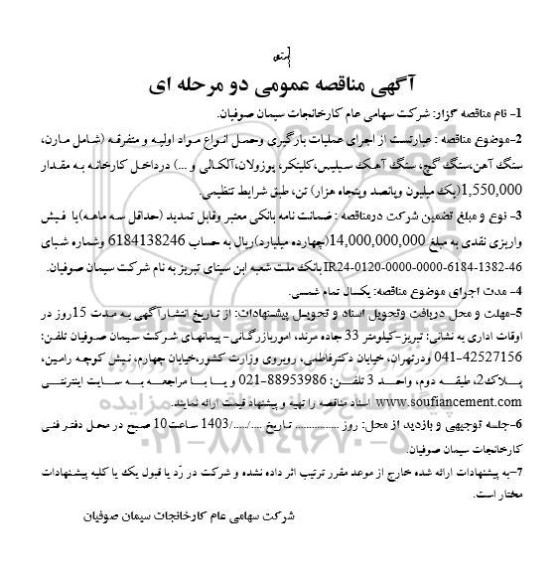 آگهی مناقصه عمومی دو مرحله ای
1- نام مناقصه گزار: شرکت سهامی عام کارخانجات سیمان صوفیان.
2-موضوع مناقصه : عبارتست از اجرای عملیات بارگیری وحمل انواع مواد اولیه و متفرقه (شامل مارن،
سنگ آهن،سنگ گچ، سنگ آهک سیلیس،کلینکر، پوزولان،آلکالی و ...) درداخل کارخانه به مقدار
1,550,000(یک میلیون وپانصد وپنجاه هزار) تن، طبق شرایط تنظیمی.
3- نوع و مبلغ تضمین شرکت درمناقصه : ضمانت نامه بانکی معتبر وقابل تمدید (حداقل سه ماهه)یا فیش
واریزی نقدی به مبلغ 14,000,000,000(چهارده میلیارد)ریال به حساب 6184138246 وشماره شبای
IR24-0120-0000-0000-6184-1382-46 بانک ملت شعبه ابن سینای تبریز به نام شرکت سیمان صوفیان.
4- مدت اجرای موضوع مناقصه: یکسال تمام شمسی.
5-مهلت و محل دریافت وتحویل اسناد و تحویل پیشنهادات: از تاریخ انتشارآگهی به مدت 15روز در
اوقات اداری به نشانی: تبریز-کیلومتر 33 جاده مرند، اموربازرگانی- پیمانهای شرکت سیمان صوفیان تلفن:
041-42527156 ودرتهران،خیابان دکترفاطمی، روبروی وزارت کشور،خیابان چهارم، نبش کوچه رامین،
پلاک2، طبقه دوم، واحد 3 تلفن: 88953986-021 و یا با مراجعه به سایت اینترنتی
www.soufiancement.com اسناد مناقصه را تهیه و پیشنهاد قیمت ارائه نمایند.
6-جلسه توجیهی و بازدید از محل: روز .............. تاریخ ..../...../1403 ساعت10 صبح در محل دفتر فنی
کارخانجات سیمان صوفیان.
7-به پیشنهادات ارائه شده خارج از موعد مقرر ترتیب اثر داده نشده و شرکت در رّد یا قبول یک یا کلیه پیشنهادات
مختار است.
شرکت سهامی عام کارخانجات سیمان صوفیان